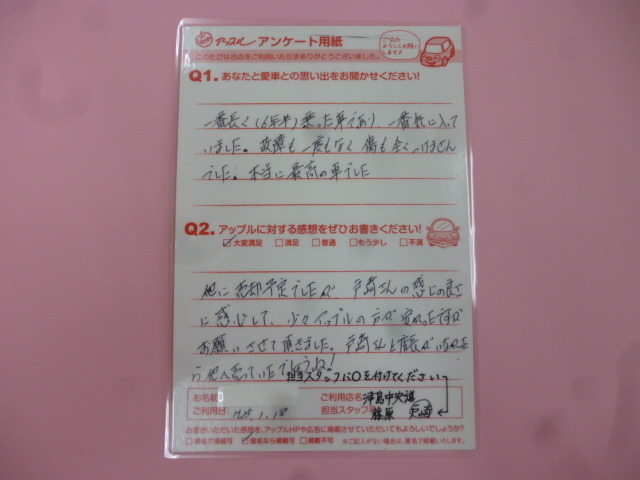 アップル アンケート用紙
このたびは当店をご利用いただきありがとうございました。
Q1. あなたと愛車との思い出をお聞かせください!
一番長く(6年半)乗った車であり、一番気に入って
いました。故障も一度もなく傷も全くつけません
でした。本当に最高の車でした
Q2. アップルに対する感想をぜひお書きください!
☑大変満足 □満足 □普通 □もう少し □不満
他に売却予定でしたが、戸崎さんの感じの良さ
に感じして、少々アップルの方が安かったですが
お願いさせて頂きました。戸崎さんと店長がいなかった
ら他へ売っていたでしょうね!
担当スタッフに○を付けてください
お名前
ご利用店名: 津島中央道
ご利用日: 1.18
担当スタッフ名: 藤原 戸崎
お書きいただいた感想を、アップルHPや広告に掲載させていただいてもよろしいでしょうか?
□匿名で掲載可 ☑匿名なら掲載可 □掲載不可 ※ご記入がない場合は、匿名で掲載いたします。